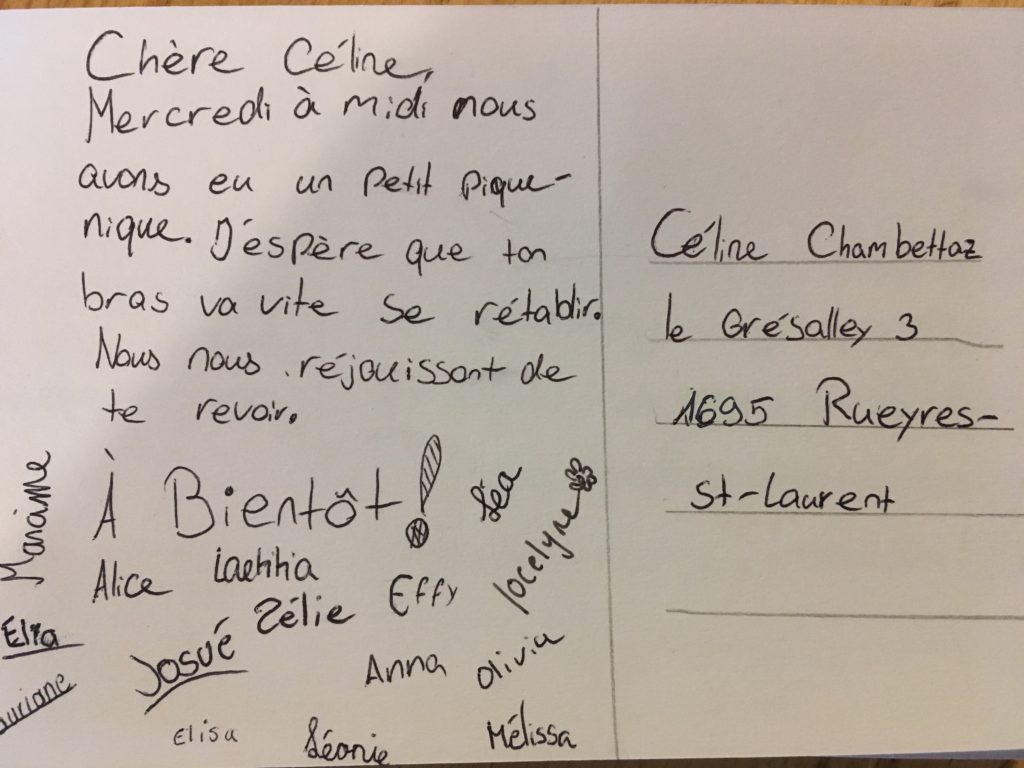 Chère Céline,
Mercredi à midi nous
avons eu un petit pique-
nique. J'espère que ton
bras va vite se rétablir.
Nous nous réjouissont de
te revoir.
À Bientôt!
Léa
Jocelyne
Mariame
Alice
Laetitia
Effy
Zélie
Elia
Josué
Anna
Olivia
Elisa
Léonie
Mélissa
Céline Chambettaz
le Grésalley 3
1695 Rueyres-
St-Laurent